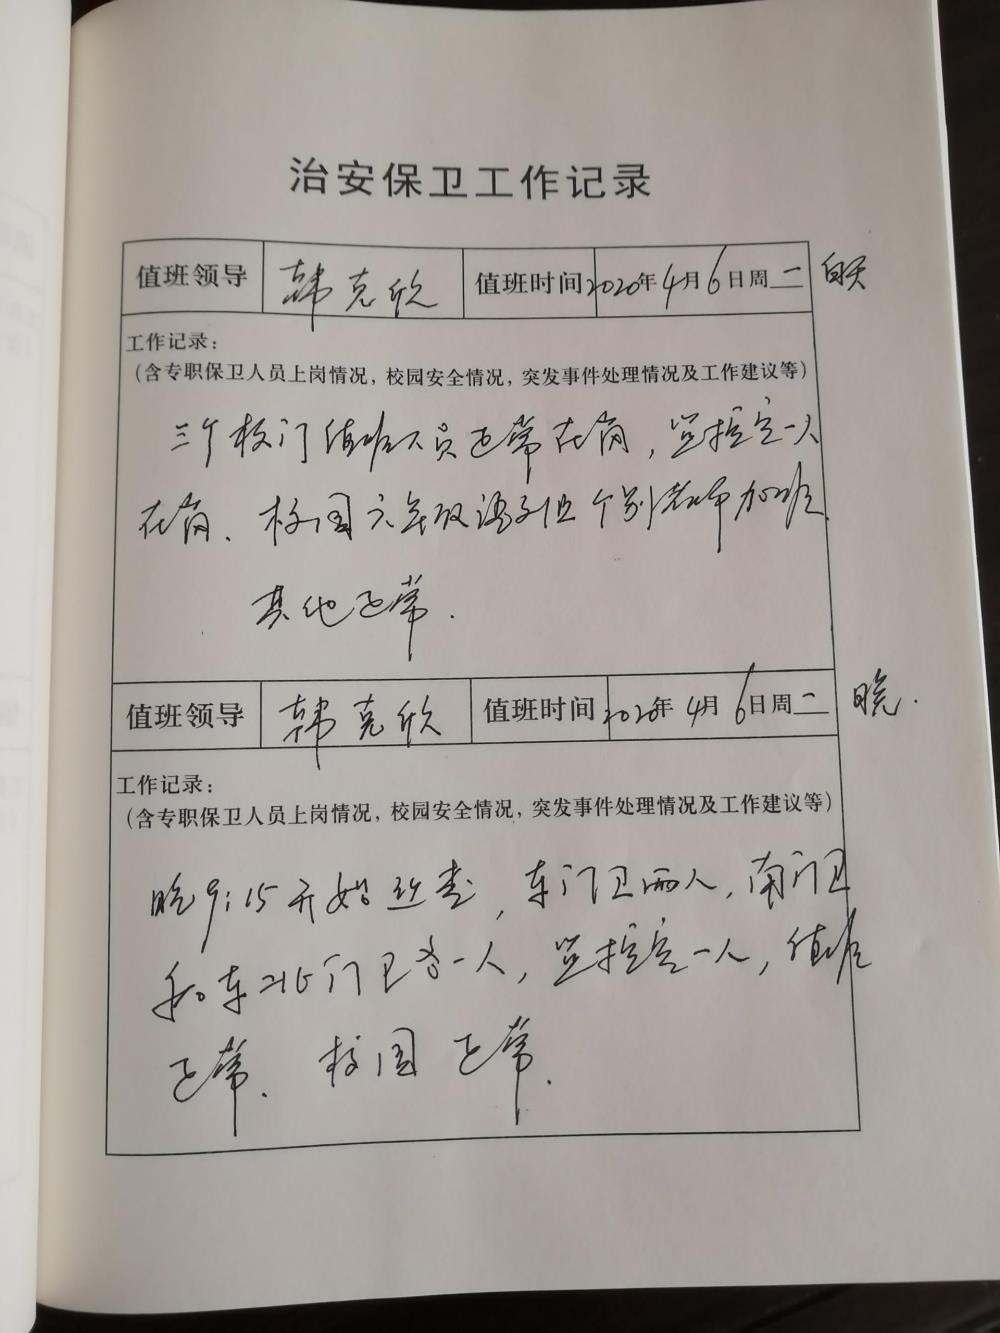 治安保卫工作记录
值班领导 韩克欣 值班时间 2020年4月6日周二 白天
工作记录：
（含专职保卫人员上岗情况，校园安全情况，突发事件处理情况及工作建议等）
三个校门值班人员正常在岗，监控室一人
在岗、校园六年级语文组个别老师加班
其他正常.
值班领导 韩克欣 值班时间 2020年4月6日周二 晚.
工作记录：
（含专职保卫人员上岗情况，校园安全情况，突发事件处理情况及工作建议等）
晚9:15开始巡查，东门卫两人，南门卫
和东北门卫各一人，监控室一人，值班
正常. 校园正常.